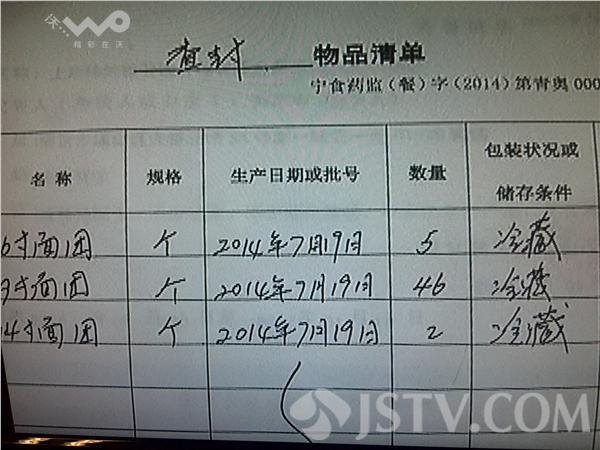 沃…
WO
精彩在沃
查封 物品清单
宁食药监（餐）字（2014）第青奥000
名称 规格 生产日期或批号 数量 包装状况或
储存条件
6寸面团 个 2014年7月19日 5 冷藏
9寸面团 个 2014年7月19日 46 冷藏
14寸面团 个 2014年7月19日 2 冷藏
JSTV.COM